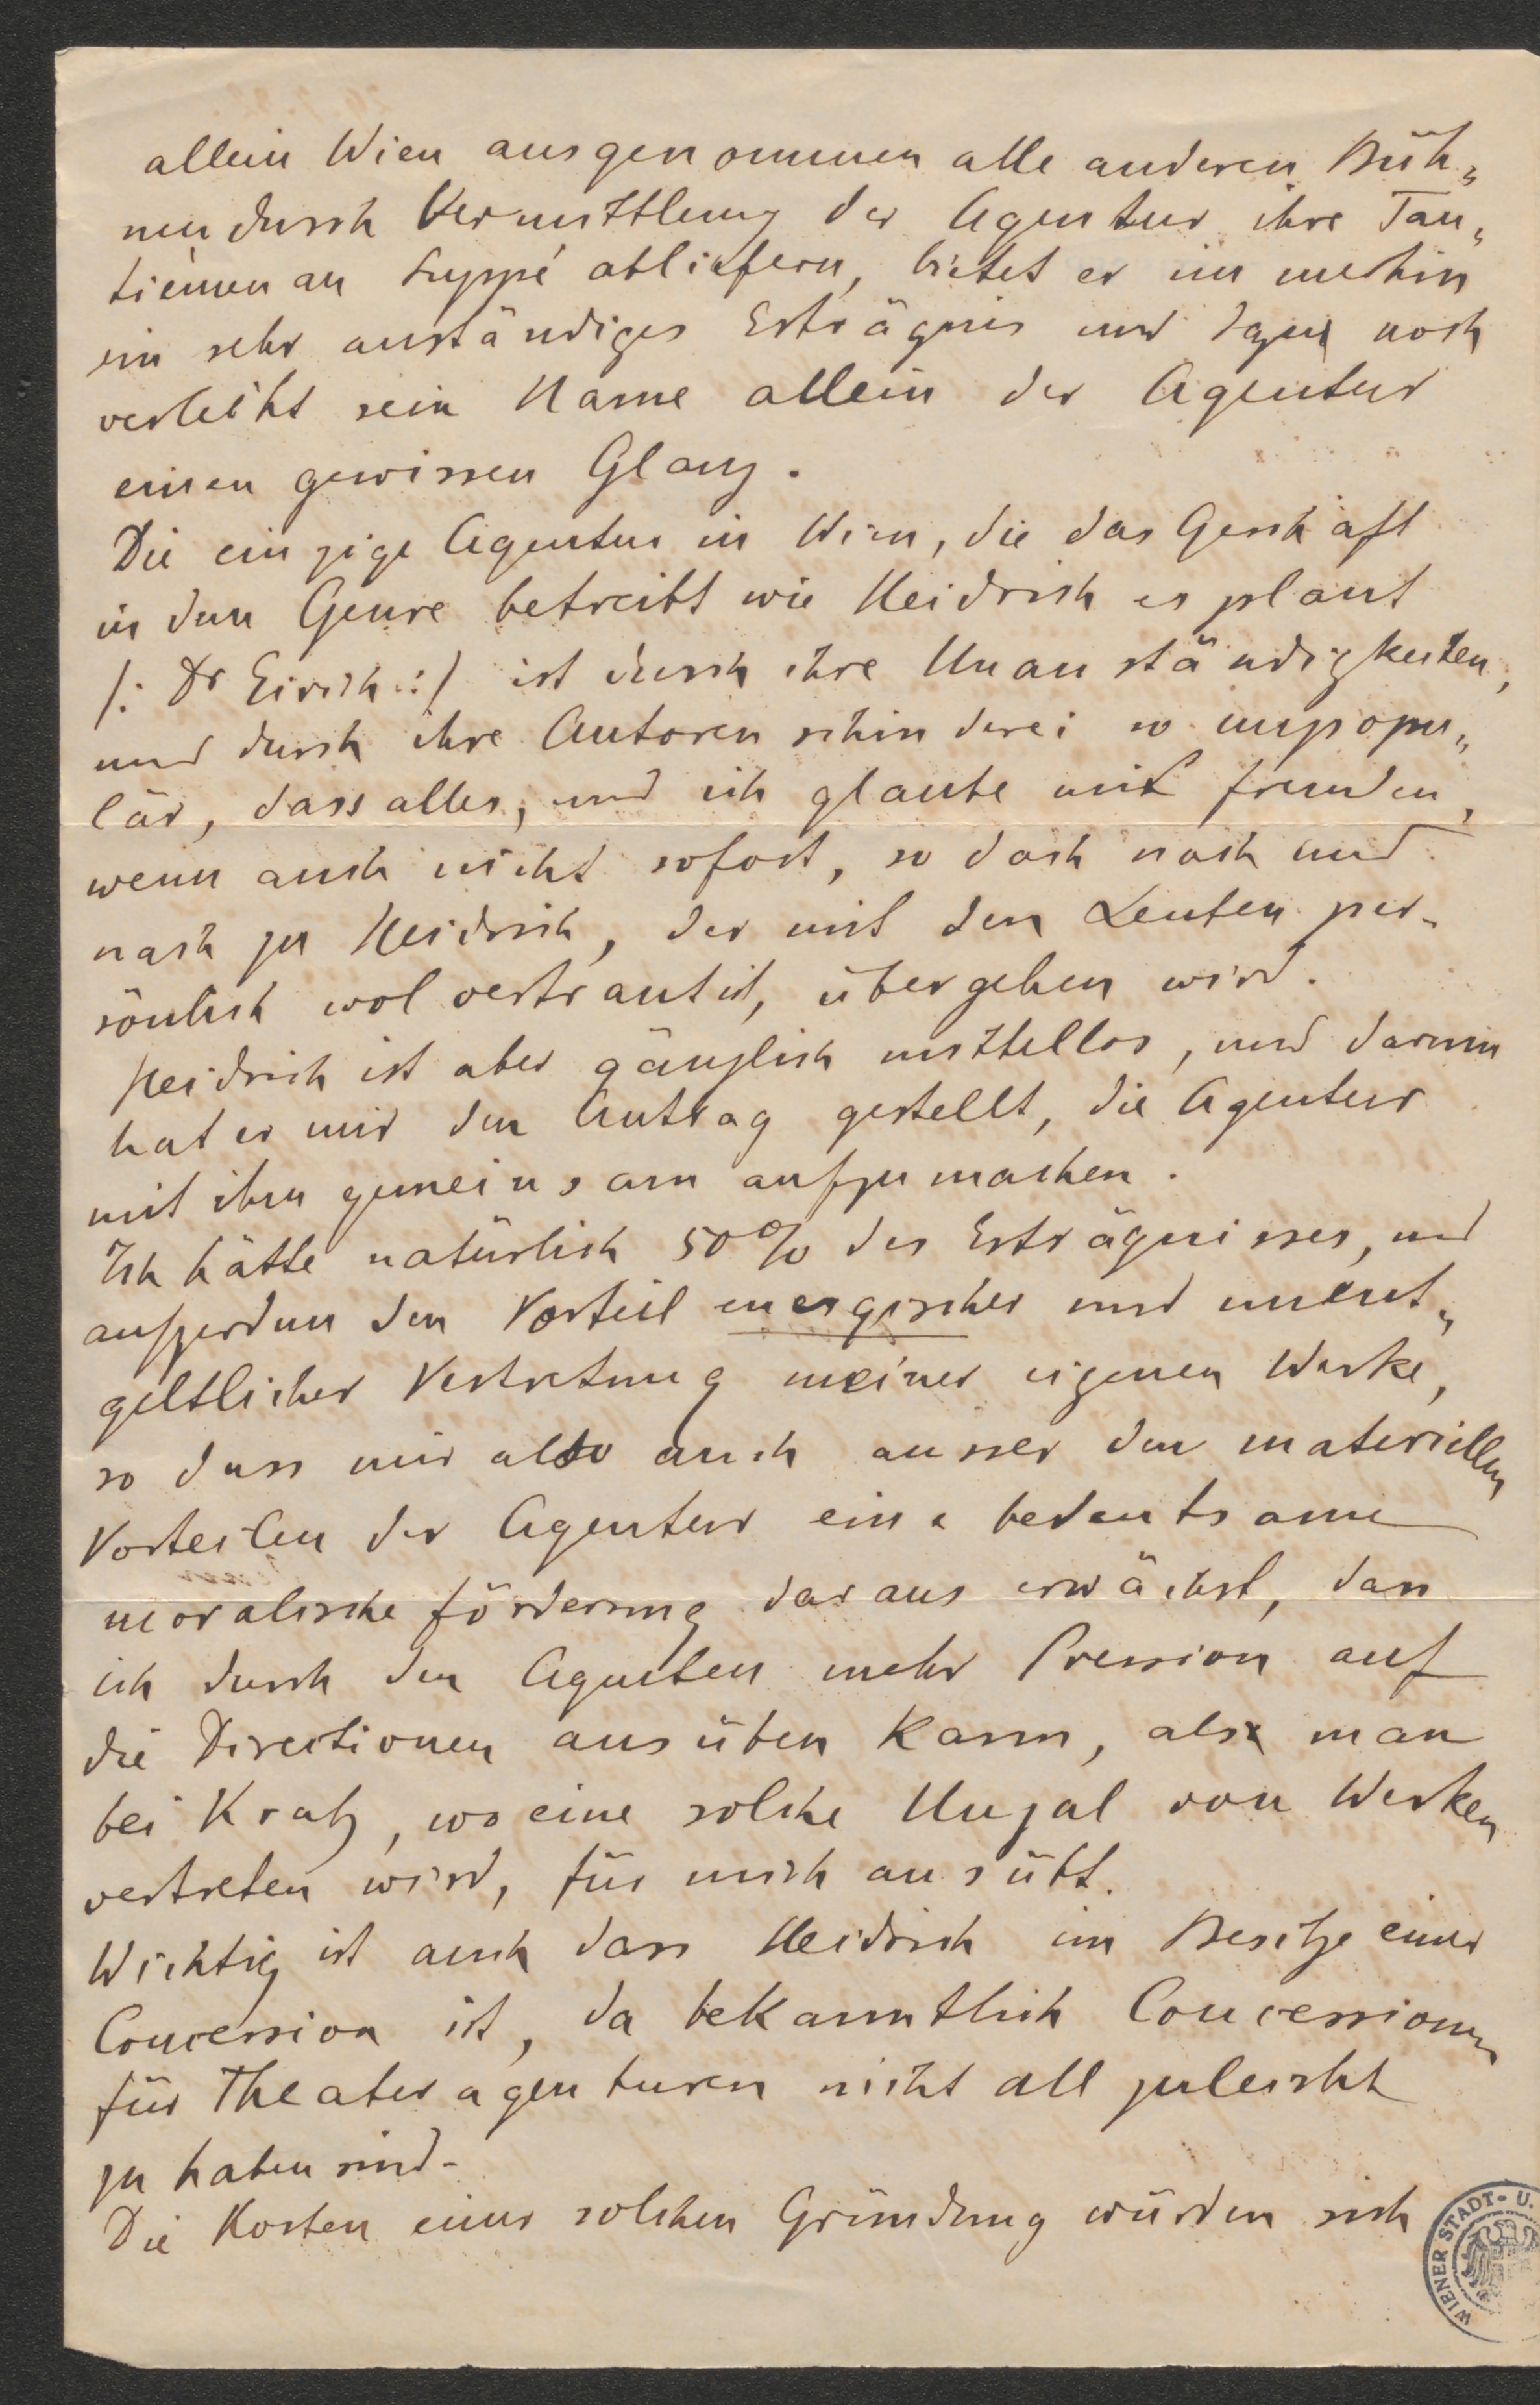 allein Wien ausgenommen alle anderen Büh„
nen durch Vermittlung der Agentur ihre Tan„
tièmen an Suppé abliefern, bietet er im merhin
ein sehr anständiges Erträgnis und noch
verleiht sein Name allein der Agentur
einen gewissen Glanz.
Die einzige Agentur in Wien, die das Geschäft
in dem Genre betreibt wie Heidrich es plant
/: Dr Eirich :/ ist durch ihre Unanständigkeiten,
und durch ihre Autorenschinderei so unpopu„
lär, dass alles, und ich glaube mit Freuden,
wenn auch nicht sofort, so doch nach und
nach zu Heidrich, der mit den Leuten per-
sönlich wol vertraut ist, übergehen wird.
Heidrich ist aber gänzlich mittellos, und darum
hat er mir den Antrag gestellt, die Agentur
mit ihm gemeinsam aufzumachen.
Ich hätte natürlich 50% des Erträgnisses, und
außerdem den Vorteil energischer und unent„
geltlicher Vertretung meiner eigenen Werke,
so dass mir also auch ausser den materiellen
Vorteilen der Agentur eine bedeutsame
moralische Förderung daraus erwächst, dass
ich durch den Agenten mehr Pression auf
die Directionen ausüben kann, als man
bei Kratz, wo eine solche Unzal von Werken
vertreten wird, für mich ausübt.
Wichtig ist auch dass Heidrich im Besitze einer
Concession ist, da bekanntlich Concessionen
für Theateragenturen nicht allzuleicht
zu haben sind-
Die Kosten einer solchen Gründung würden sich
WIENER STADT- U.